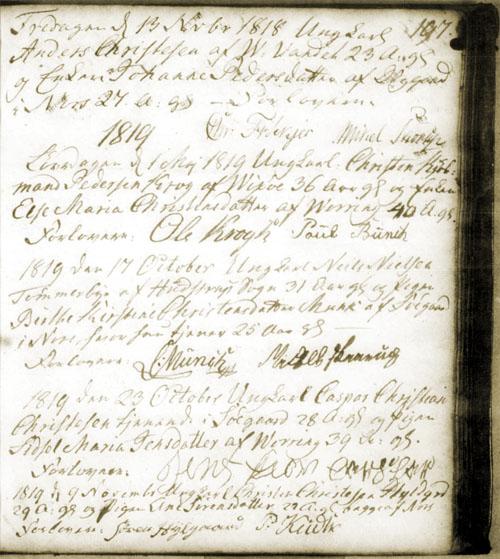 Fredagen d 13 Novbr 1818 Ung Karl 187.
Anders Christesen af W. Vandet 23 A: gl
og Enken Johanne Pedersdatter af
i Nors 27 A: gl — Forlovere.
1819
Løverdagen d 1 May 1819 Ung Karl Christen Kiøb=
mand Pedersen Krog af Wixøe 36 Aar gl og Enken
Else Maria Christensdatter af Werring 40 A. gl.
Forlovere: Ole Krogh Poul Bunch
1819 den 17 October Ung Karl Neils Nielsen
Tømmerbye af Hindstrup Sogn 31 Aar gl og Pigen
Birthe Kirstine Christensdatter Munk af Søegaard
i Nors, hvor hun tjener 25 Aar gl —
Forlovere: C Munch
1819 den 23 October Ung Karl Caspar Christian
Christesen tjenende i Søegaard 28 A: gl og Pigen
Sidsel Maria Jensdatter af Werring 39 A: gl.
Forlovere: Jens
1819 d 9 November Ung Karl Christen Christesen Hyldgrd
29 A: gl og Pigen Ane Sørensdatter 29 A: gl begge af Nors
Forlovere: Søren Hylgaard P. Kudk